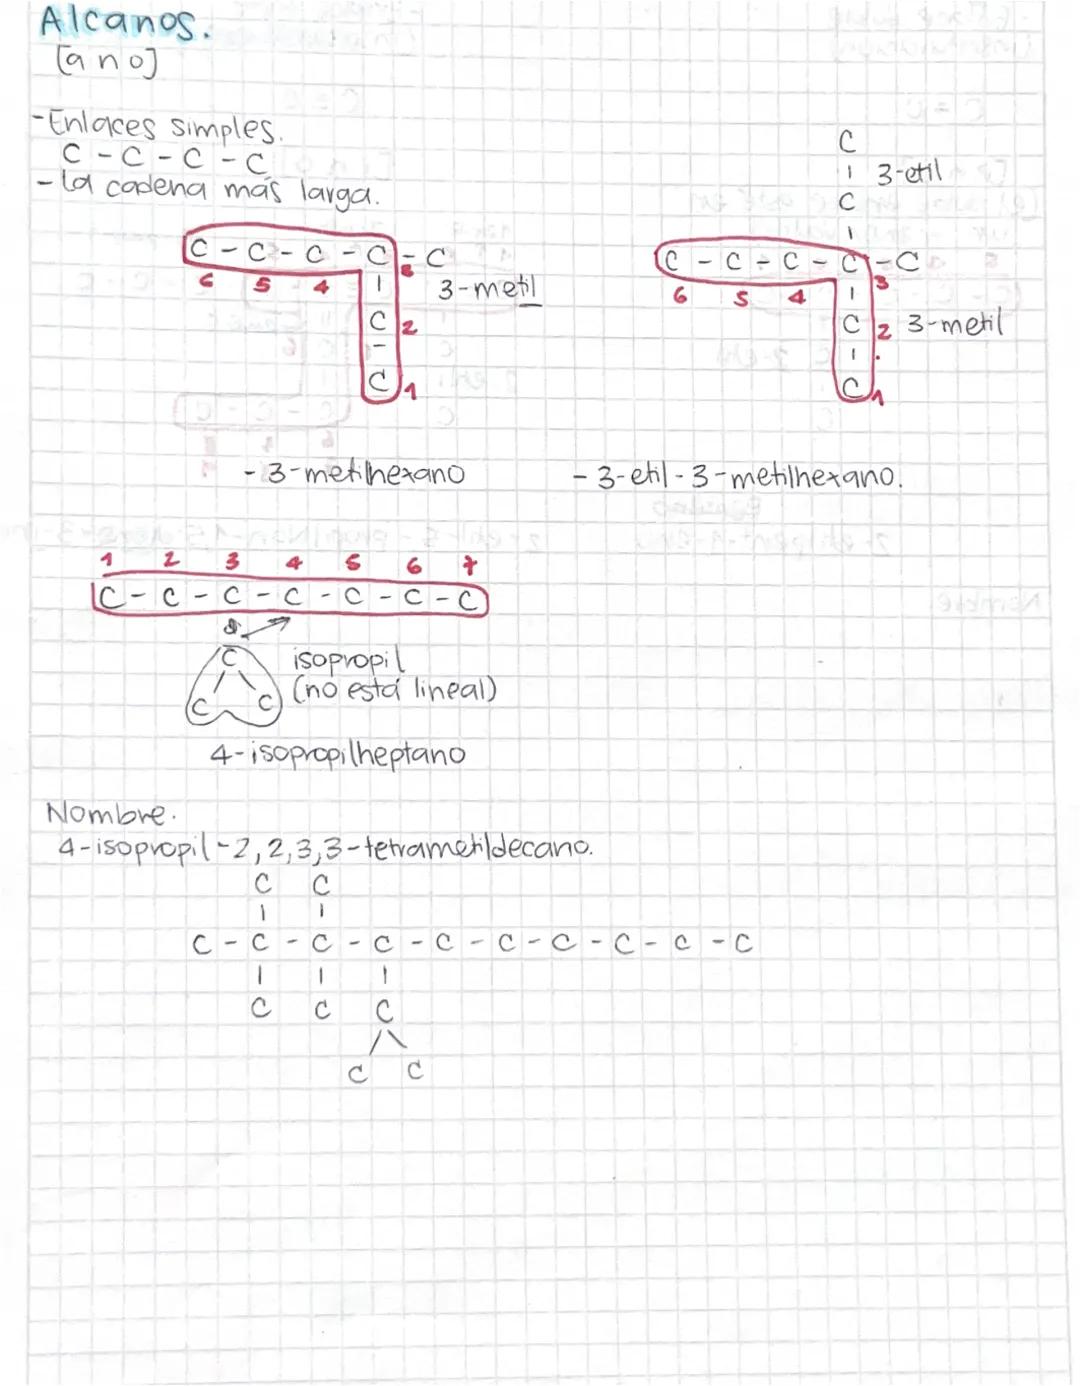 Alcanos.
[ano]
-Enlaces simples.
C - C - C - C
- La cadena más larga.
C - C - C - C - C
6 5 4 3
3-metil
C 2
C 1
- 3-metilhexano
C
3-etil
C
C - C - C - C - C
6 5 4 3
C 2 3-metil
C 1
- 3-etil-3-metilhexano.
1 2 3 4 5 6 7
C - C - C - C - C - C - C
C
C C
isopropil
(no está lineal)
4-isopropilheptano
Nombre.
4-isopropil-2,2,3,3-tetrametildecano.
C C
C - C - C - C - C - C - C - C - C - C
C C C
C C